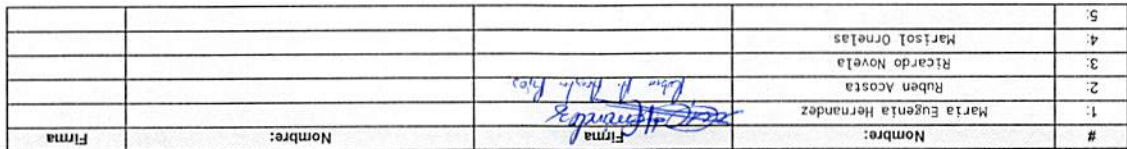 # Nombre: Firma Nombre: Firma
1: Maria Eugenia Hernandez Hernandez
2: Ruben Acosta Ruben A. Acosta
3: Ricardo Novela
4: Marisol Ornelas
5: